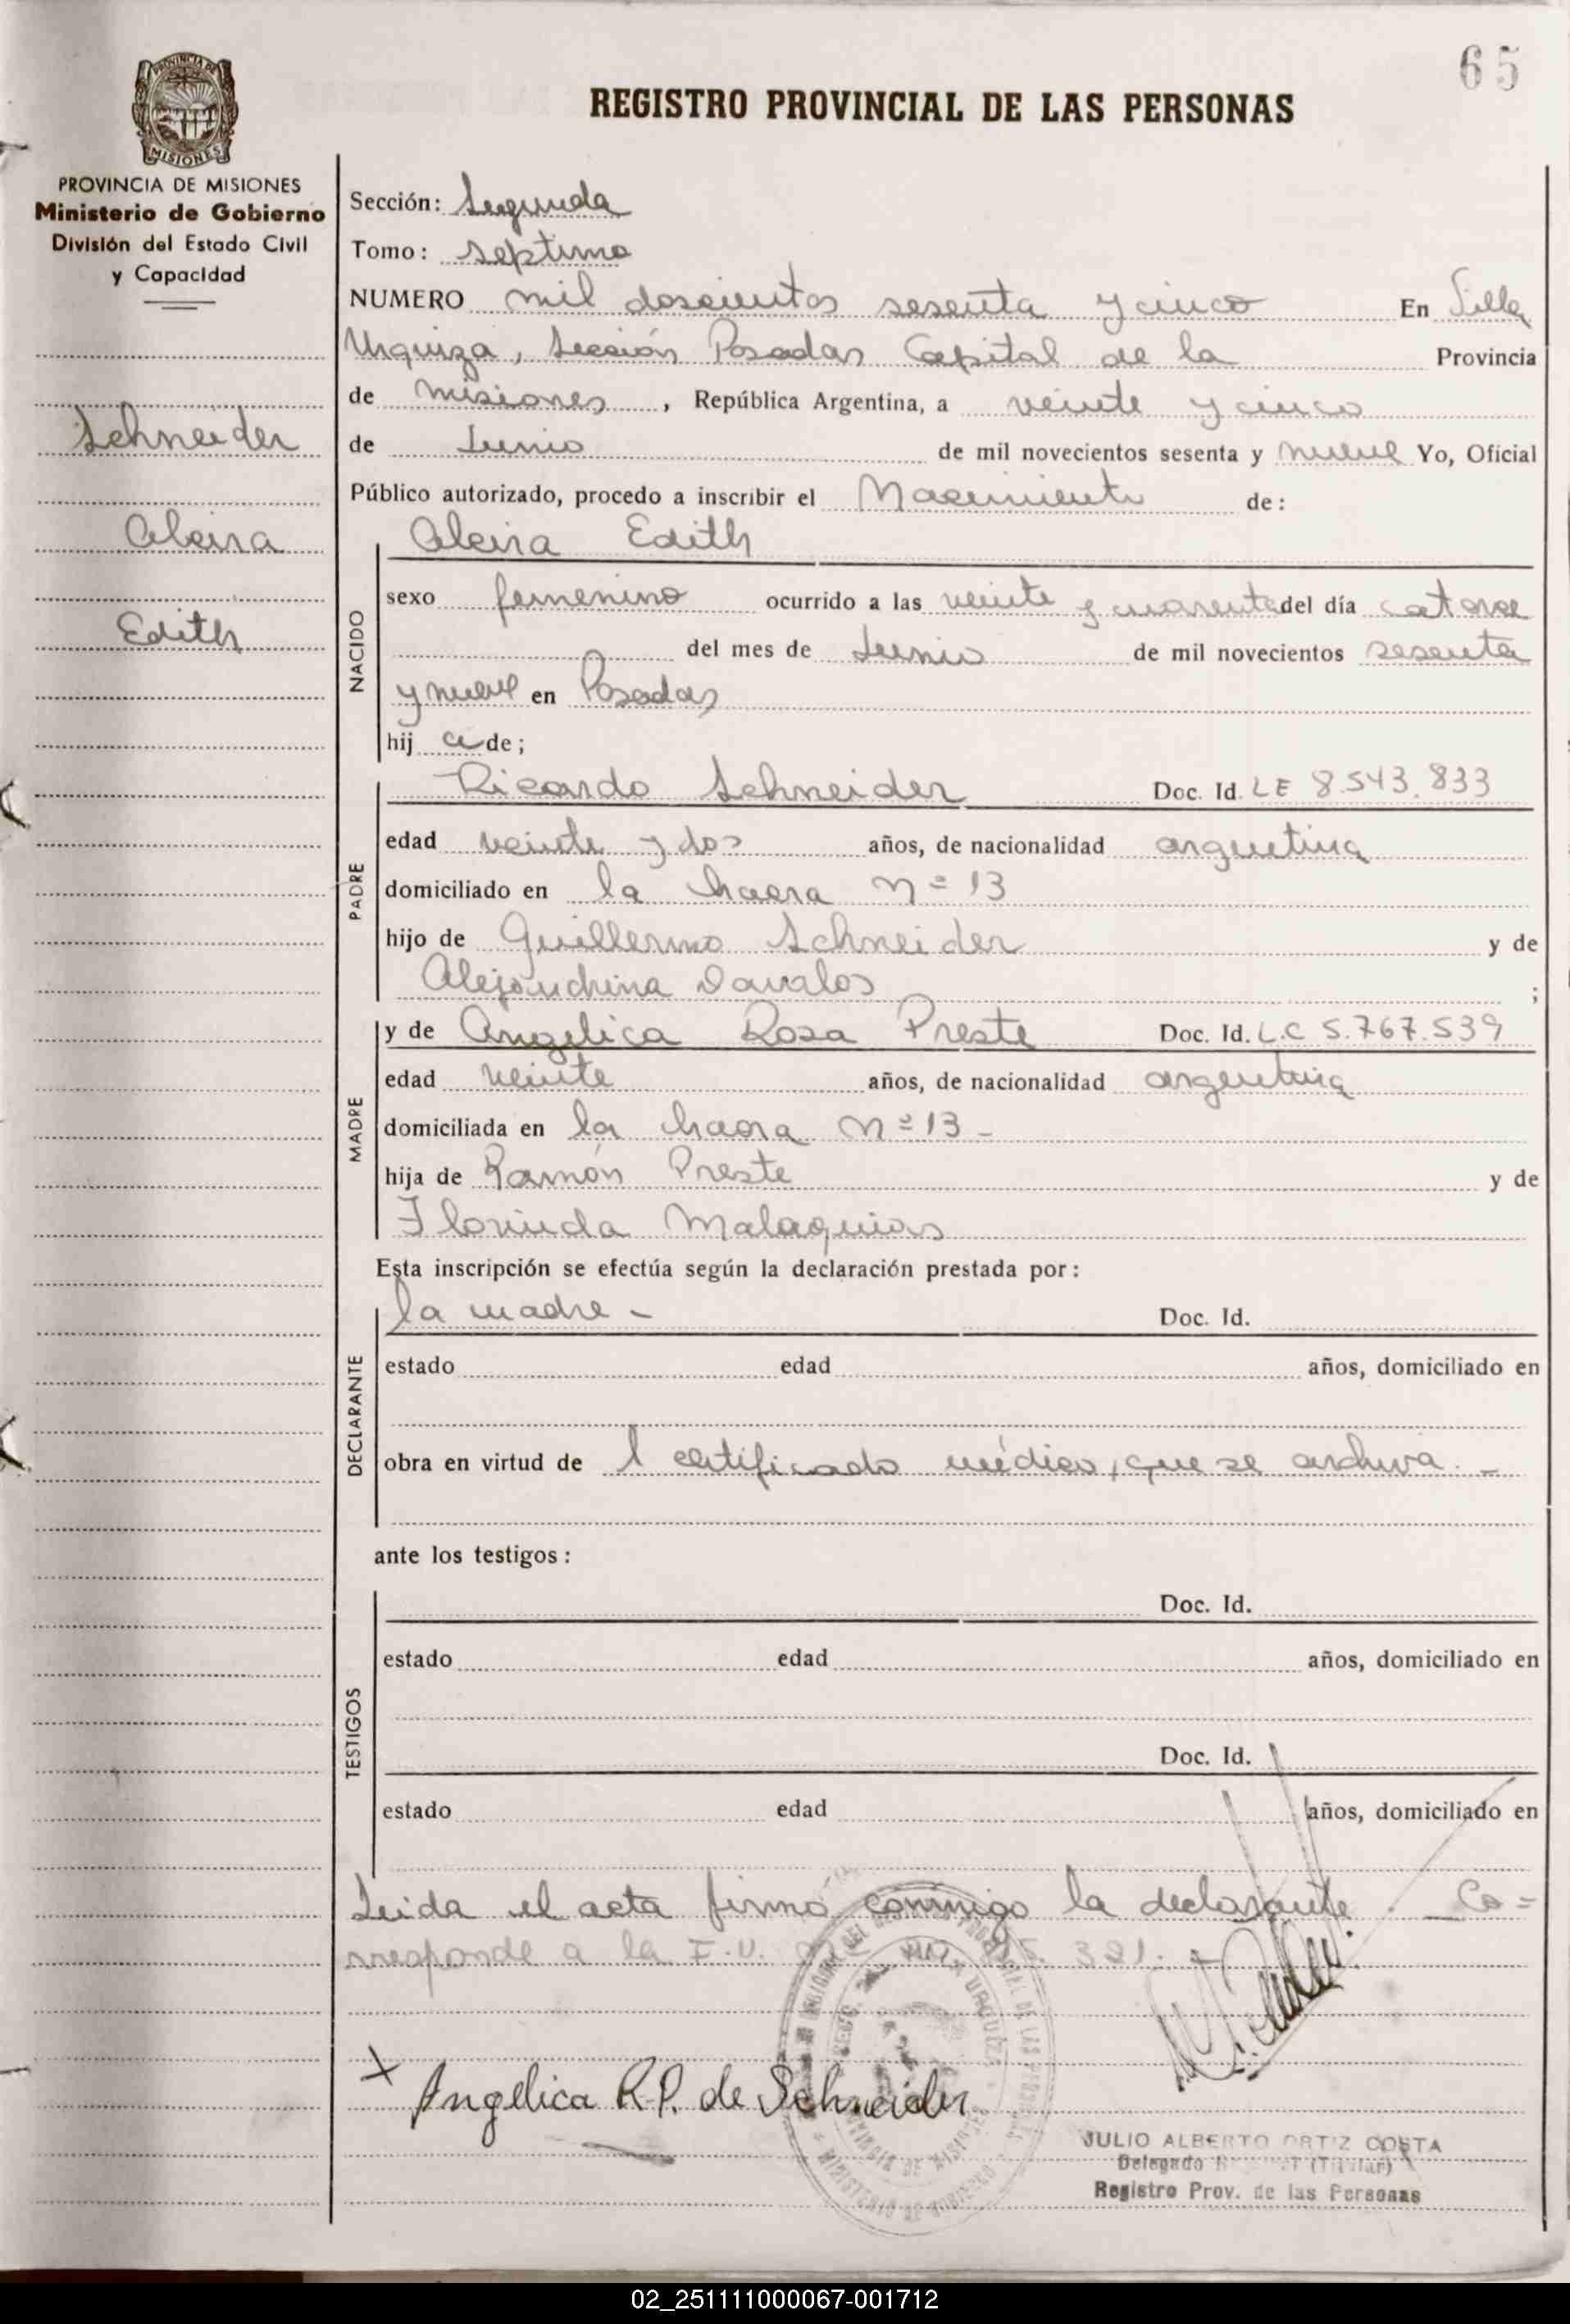 65
REGISTRO PROVINCIAL DE LAS PERSONAS
PROVINCIA DE MISIONES
MISIONES
PROVINCIA DE MISIONES
Ministerio de Gobierno
División del Estado Civil
y Capacidad
Schneider
Alcira
Edith
Sección: Segunda
Tomo: septimo
NUMERO mil doscientos sesenta y cinco En Villa
Urquiza, Sección Posadas Capital de la Provincia
de Misiones, República Argentina, a veinte y cinco
de Junio de mil novecientos sesenta y nueve Yo, Oficial
Público autorizado, procedo a inscribir el Nacimiento de:
NACIDO
Alcira Edith
sexo femenino ocurrido a las veinte y cuarenta del día catorce
del mes de Junio de mil novecientos sesenta
y nueve en Posadas
hij a de;
PADRE
Ricardo Schneider Doc. Id. LE 8.543.833
edad veinte y dos años, de nacionalidad argentina
domiciliado en la chacra nº 13
hijo de Guillermo Schneider y de
Alejandrina Davalos ;
MADRE
y de Angelica Rosa Preste Doc. Id. L.C 5.767.539
edad veinte años, de nacionalidad argentina
domiciliada en la chacra nº 13 -
hija de Ramón Preste y de
Florinda Malaquias
Esta inscripción se efectúa según la declaración prestada por:
DECLARANTE
la madre - Doc. Id.
estado edad años, domiciliado en
obra en virtud de l certificado médico, que se archiva. -
ante los testigos:
TESTIGOS
Doc. Id.
estado edad años, domiciliado en
Doc. Id.
estado edad años, domiciliado en
Leida el acta firmó conmigo la declarante. Co=
rresponde a la F.U. 321.
Angélica R.P. de Schneider
JULIO ALBERTO ORTIZ COSTA
Delegado (Titular)
Registro Prov. de las Personas
02_251111000067-001712